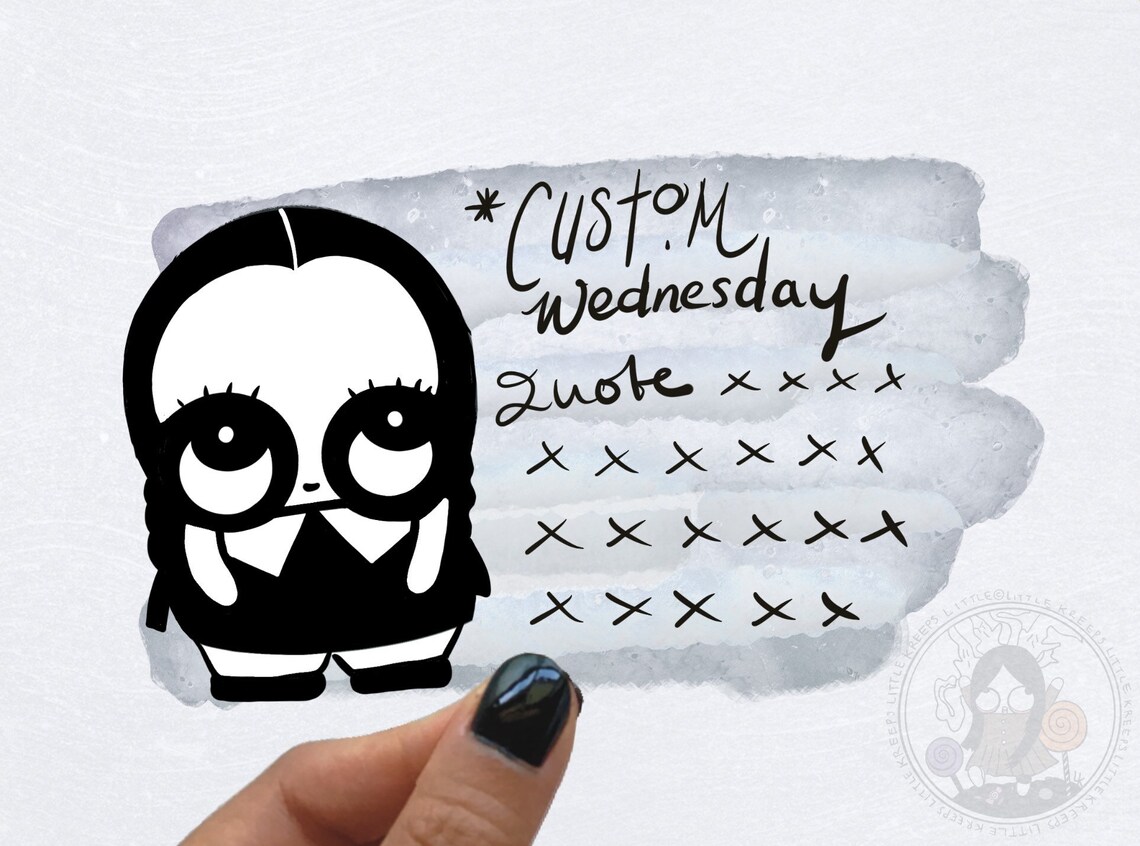 *Custom
Wednesday
Quote x x x x
x x x x x x
x x x x x x
x x x x x
LITTLE KREEPS LITTLE©LITTLE KREEPS LITTLE KREEPS LITTLE KREEPS LITTLE KREEPS LITTLE KREEPS